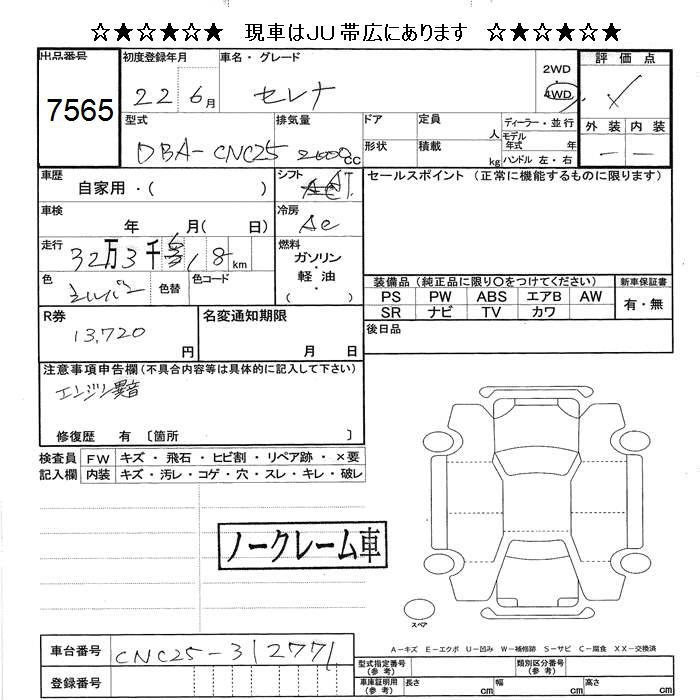 ☆★☆★☆★ 現車はJU帯広にあります ☆★☆★☆★
出品番号 初度登録年月 車名・グレード 評価点
7565 22 6月 セレナ 2WD 4WD
型式 排気量 ドア 定員 人 ディーラー・並行 外装 内装
DBA-CNC25 2000cc 形状 積載 kg モデル年式 年 ハンドル 左・右 － －
車歴 シフト セールスポイント（正常に機能するものに限ります）
自家用・( ) AT
車検 冷房
年 月( 日) AC
走行 燃料
32万3千 18km ガソリン・軽油・( )
色 色替 色コード 装備品（純正品に限り〇をつけてください） 新車保証書
シルバー PS PW ABS エアB AW 有・無
R券 名変通知期限 SR ナビ TV カワ
13,720円 月 日 後日品
注意事項申告欄（不具合内容等は具体的に記入して下さい）
エンジン異音
修復歴 有 〔箇所 〕
検査員 FW キズ・飛石・ヒビ割・リペア跡・×要
記入欄 内装 キズ・汚レ・コゲ・穴・スレ・キレ・破レ
ノークレーム車
スペア
A－キズ E－エクボ U－凹み W－補修跡 S－サビ C－腐食 XX－交換済
車台番号 CNC25-312771 型式指定番号（参考） 類別区分番号（参考）
登録番号 車庫証明用（参考） 長さ cm 幅 cm 高さ cm